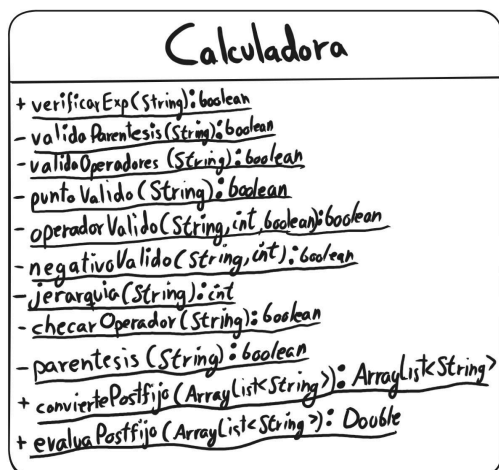 Calculadora
+ verificarExp(String): boolean
- validaParentesis(String): boolean
- validaOperadores (String): boolean
- puntoValido(String): boolean
- operadorValido(String, int, boolean): boolean
- negativoValido(String, int): boolean
- jerarquia(String): int
- checarOperador(String): boolean
- parentesis(String): boolean
+ conviertePostfijo(ArrayList<String>): ArrayList<String>
+ evaluaPostfijo(ArrayList<String>): Double